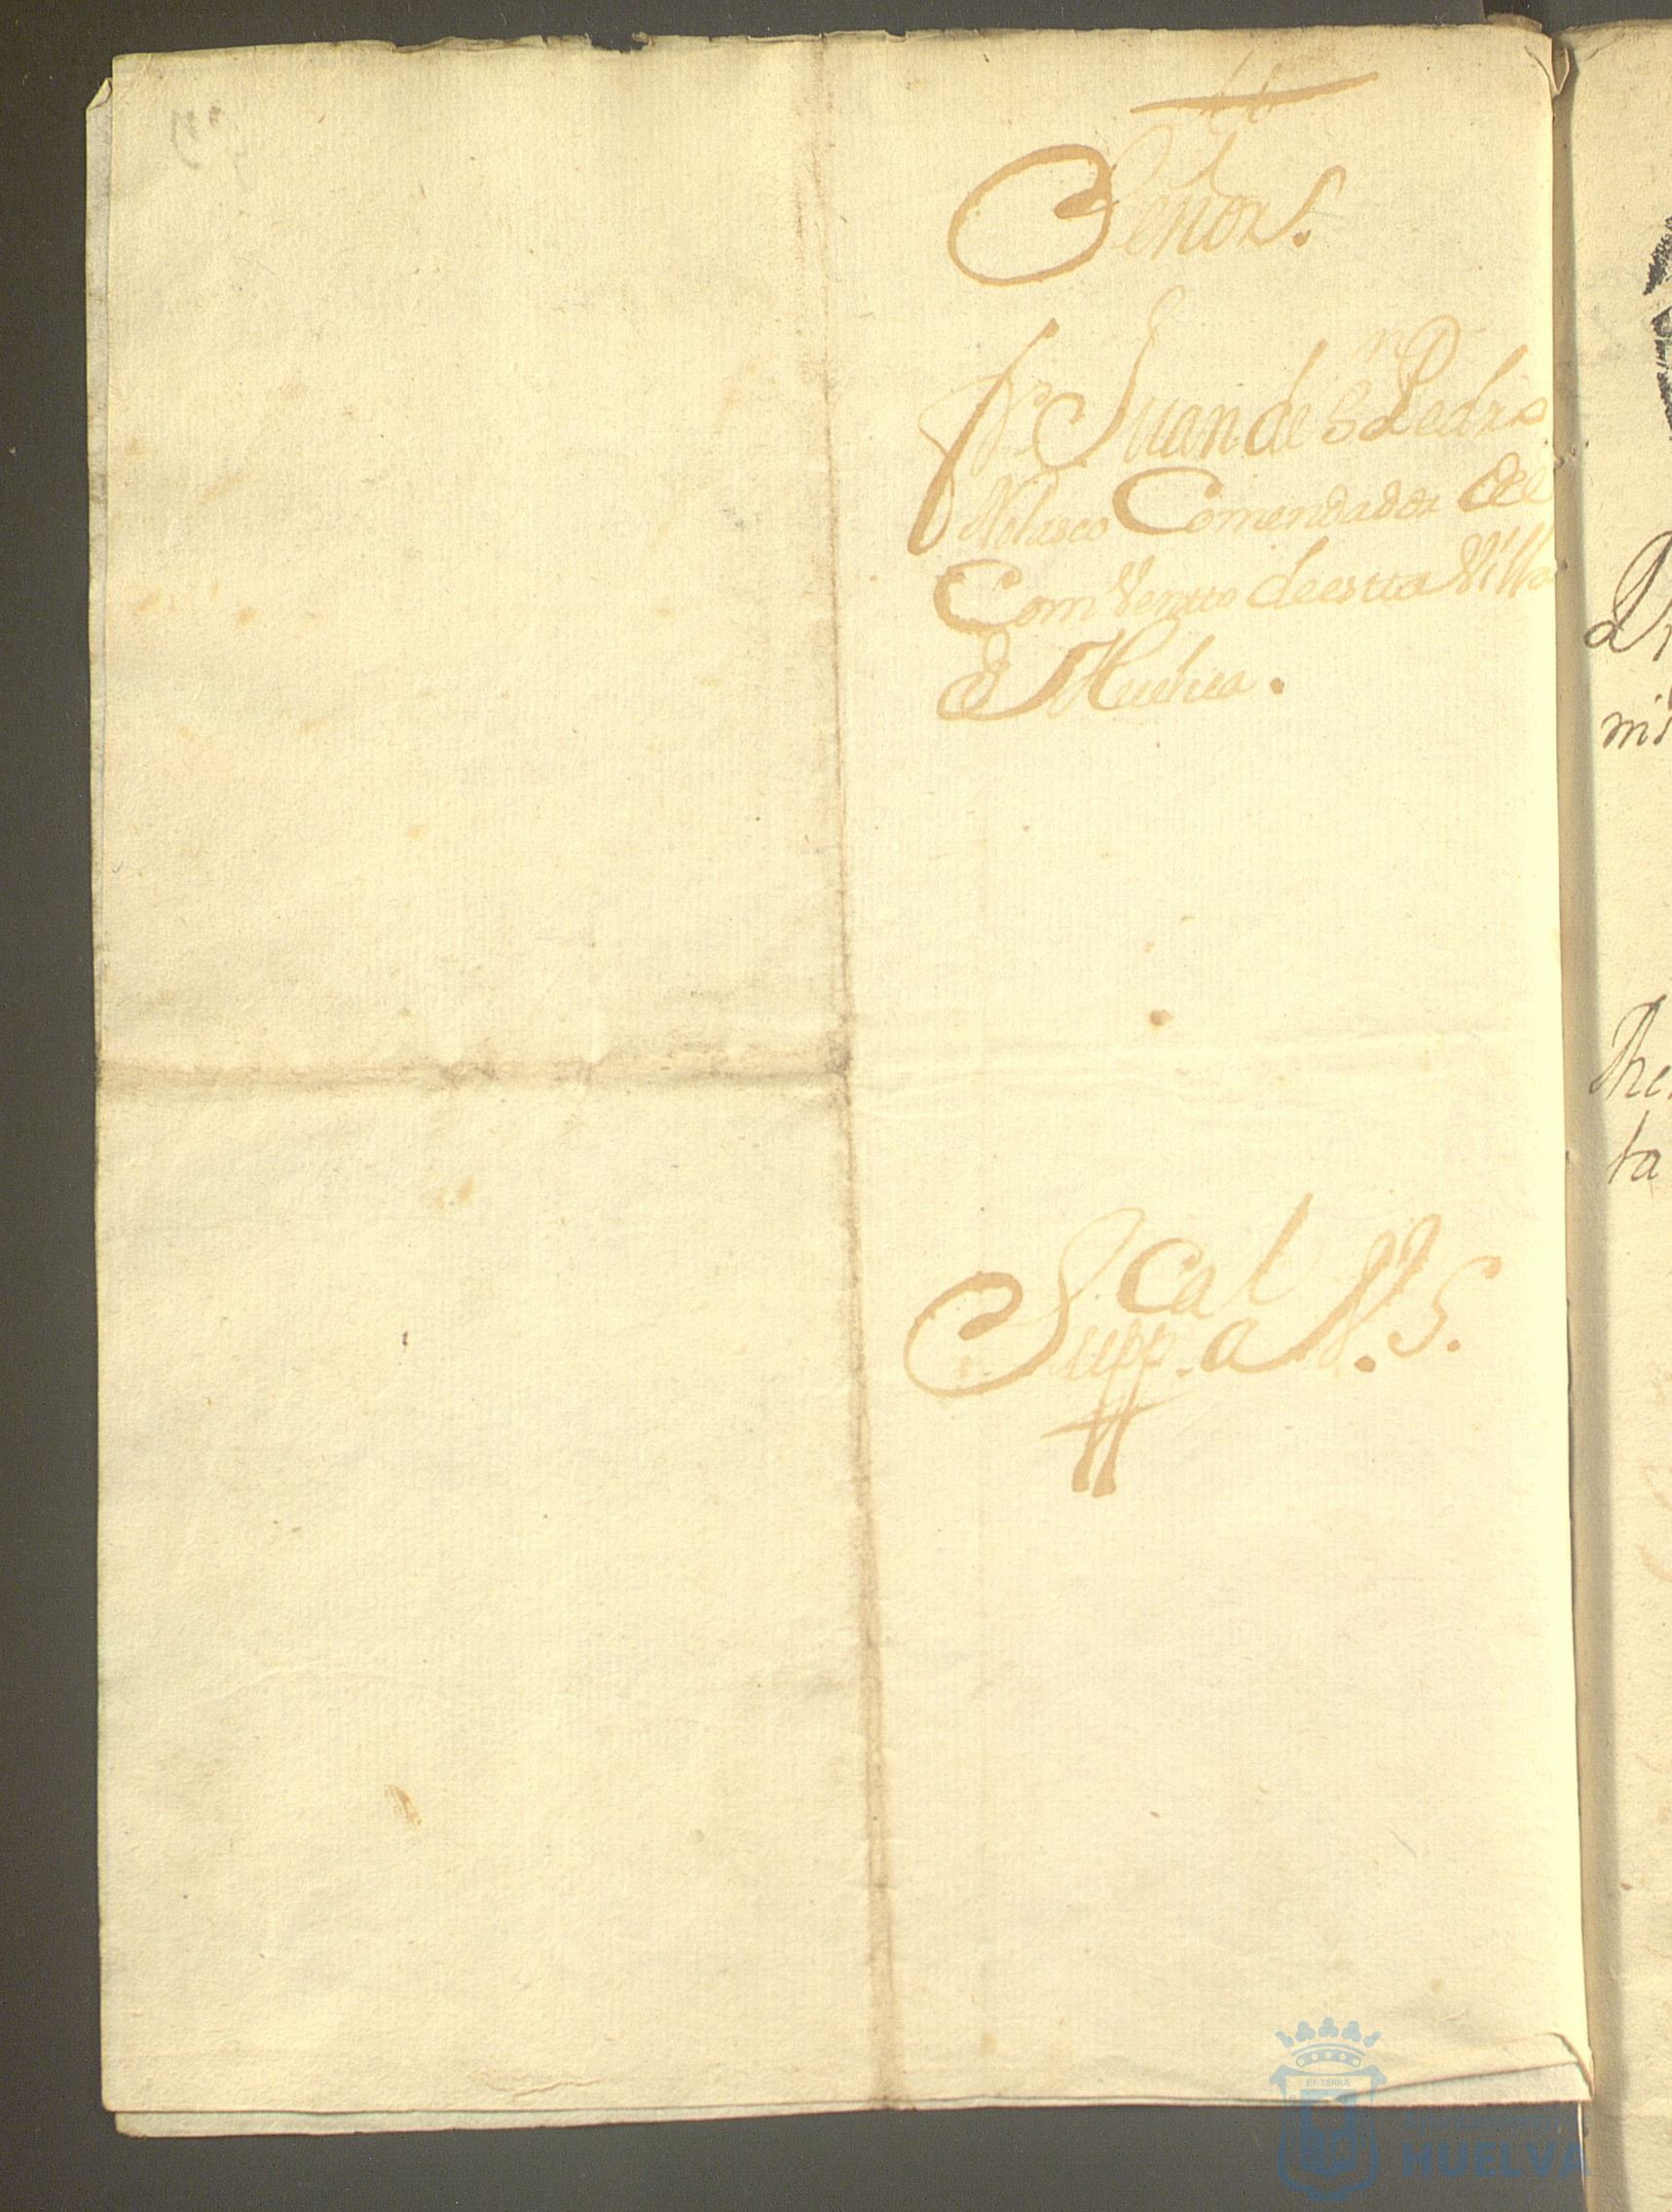 Señor.
Fr. Juan de Sn Pedro
Nolasco Comendador del
Comventto de estta Villa
de Huelva.
Suppca a V. S.
ET TERRÆ
HUELVA